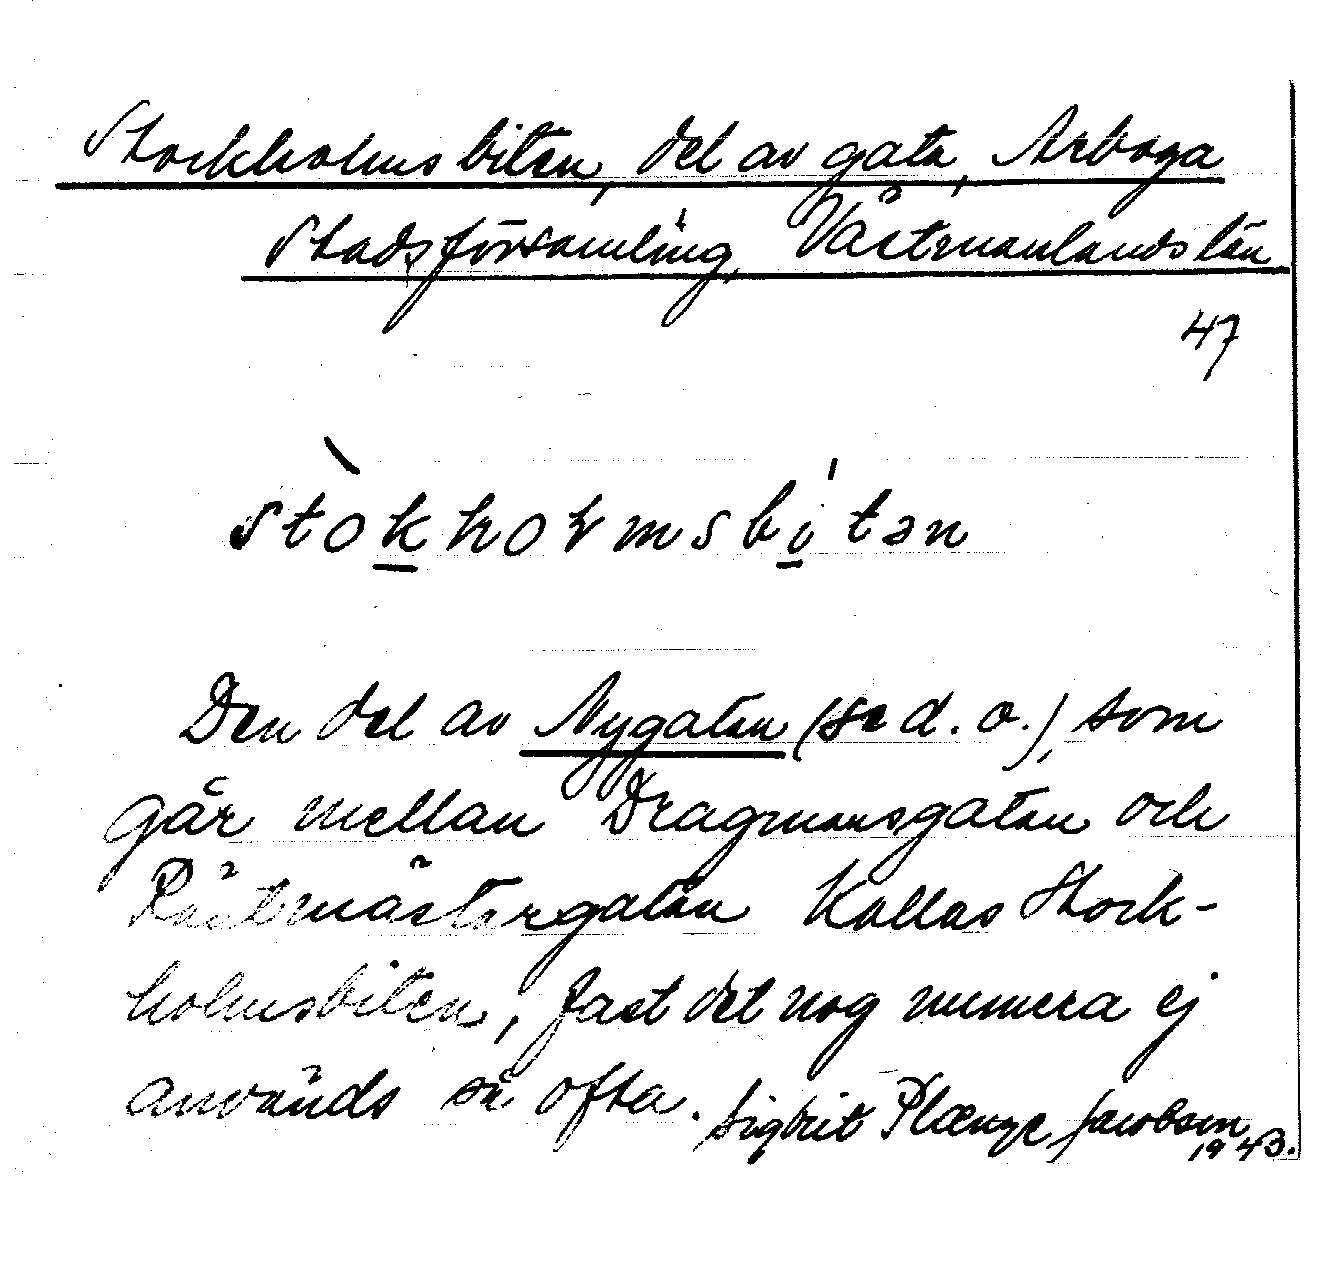 Stockholmsbiten, del av gata, Arboga
Stadsförsamling, Västmanlands län
47
stòkholmsbi'tən
Den del av Nygatan (se d. o.), som
går mellan Dragmansgatan och
Rådmästergatan kallas Stock-
holmsbiten, fast det nog numera ej
används så ofta. Sigbrit Plænge Jacobson
1943.